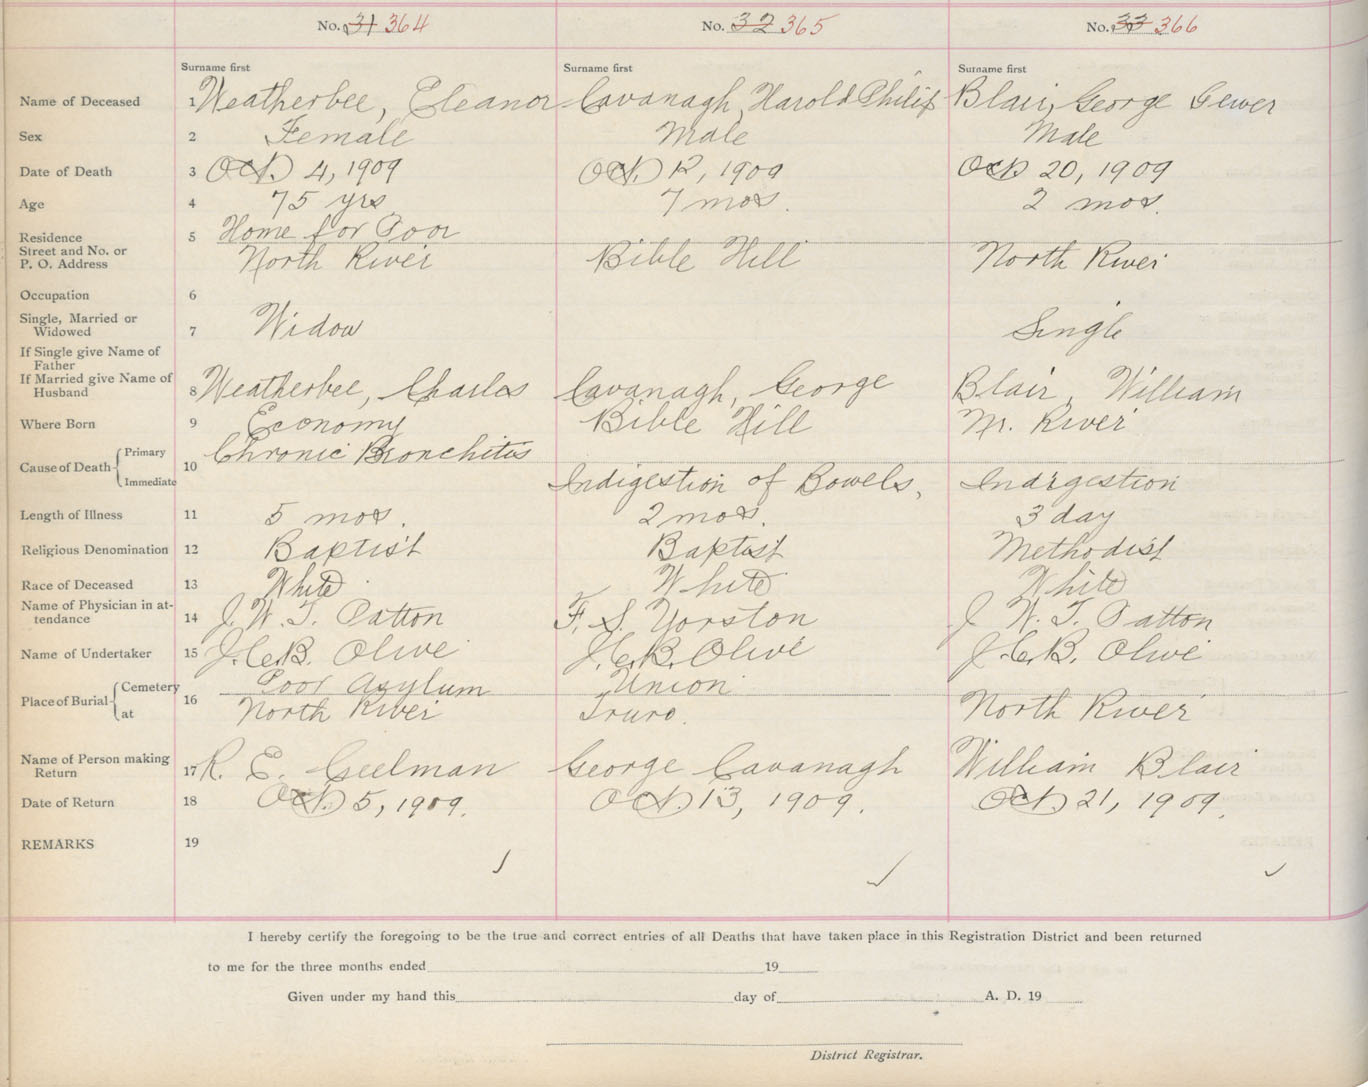 No. 31 364 No. 32 365 No. 33 366
Surname first Surname first Surname first
Name of Deceased 1 Weatherbee, Eleanor Cavanagh, Harold Philip Blair, George Gewer
Sex 2 Female Male Male
Date of Death 3 Oct. 4, 1909 Oct. 12, 1909 Oct 20, 1909
Age 4 75 yrs 7 mos. 2 mos.
Residence 5 Home for Poor
Street and No. or
P. O. Address North River Bible Hill North River
Occupation 6
Single, Married or
Widowed 7 Widow Single
If Single give Name of
Father
If Married give Name of
Husband 8 Weatherbee, Charles Cavanagh, George Blair, William
Where Born 9 Economy Bible Hill Nr. River
Cause of Death Primary 10 Chronic Bronchitis
Immediate Indigestion of Bowels, Indigestion
Length of Illness 11 5 mos. 2 mos. 3 day
Religious Denomination 12 Baptist Baptist Methodist
Race of Deceased 13 White White White
Name of Physician in at-
tendance 14 J. W. T. Patton F. S. Yorston J W. T. Patton
Name of Undertaker 15 J. C. B. Olive J. C. B. Olive J. C. B. Olive
Place of Burial Cemetery 16 Poor Asylum Union
at North River Truro. North River
Name of Person making
Return 17 R. E. George Cavanagh William Blair
Date of Return 18 Oct. 5, 1909. Oct. 13, 1909. Oct 21, 1909.
REMARKS 19
I hereby certify the foregoing to be the true and correct entries of all Deaths that have taken place in this Registration District and been returned
to me for the three months ended 19
Given under my hand this day of A. D. 19
District Registrar.